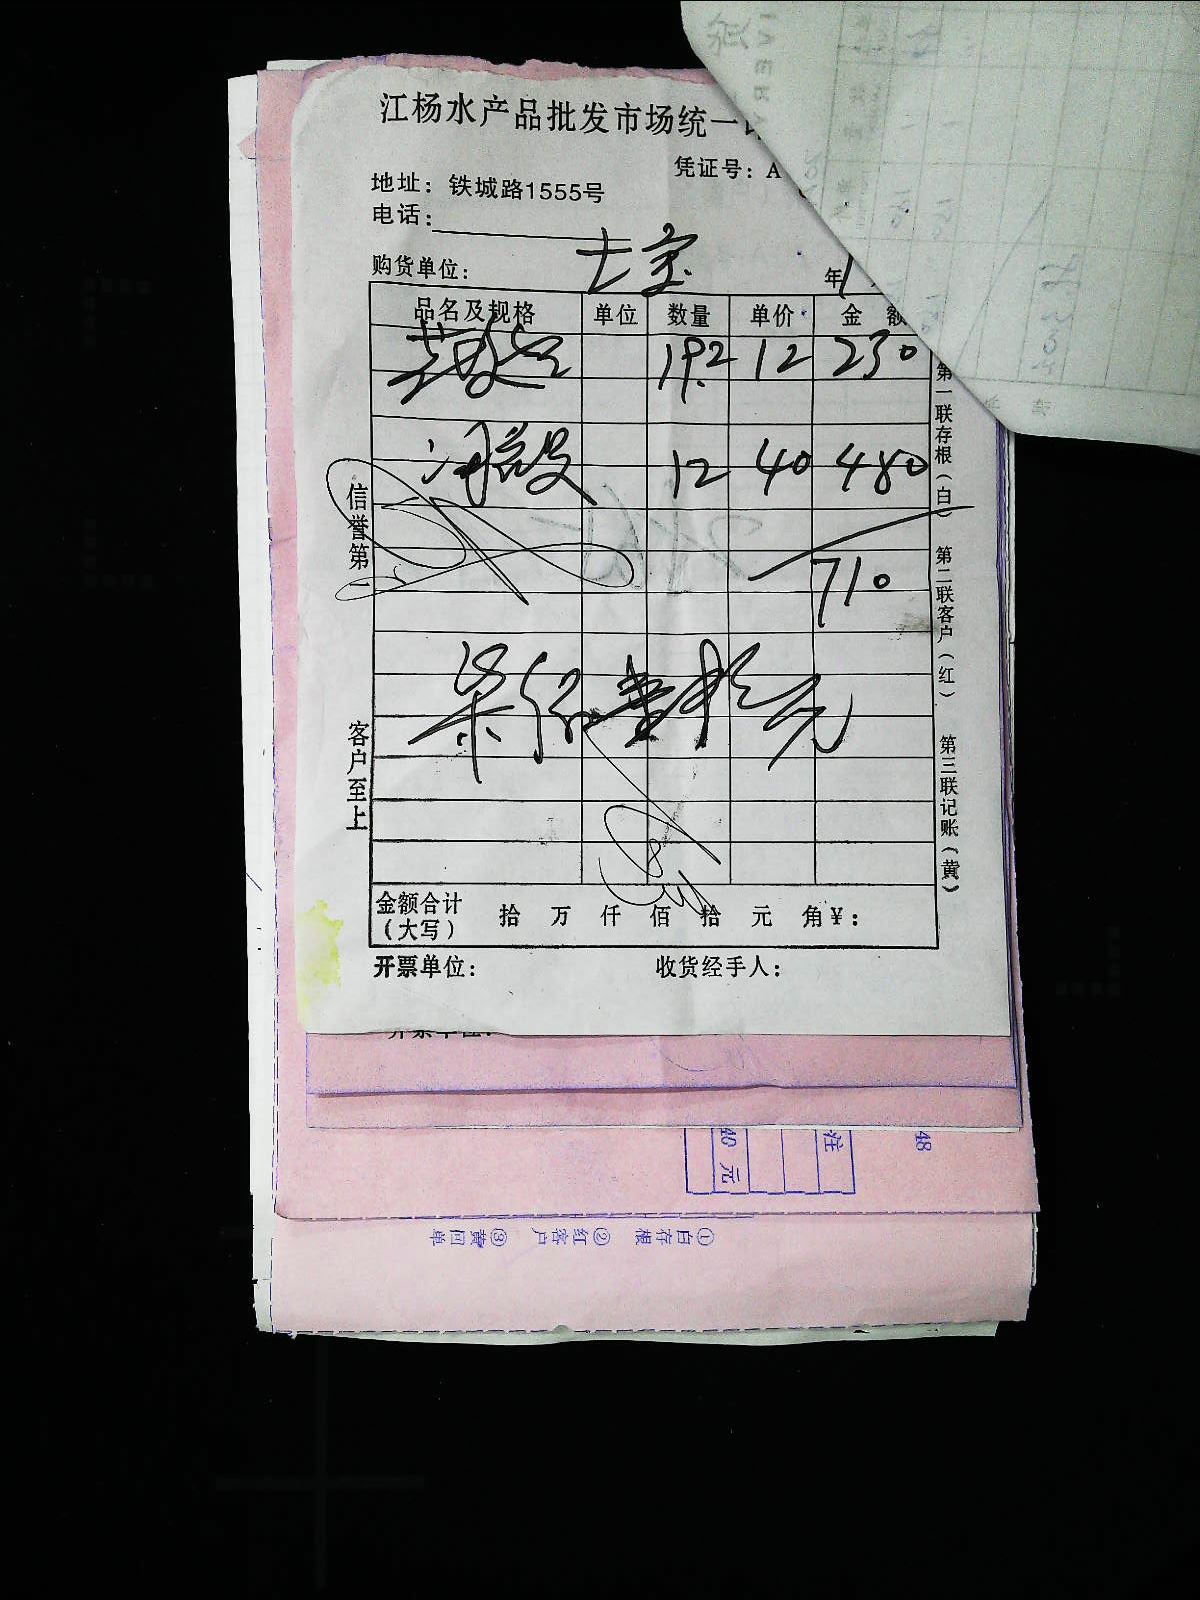 江杨水产品批发市场统一
凭证号：A
地址：铁城路1555号
电话：
七宝
购货单位： 年1
品名及规格 单位 数量 单价 金额
19.2 12 230
12 40 480
710
柒佰壹拾元
金额合计（大写） 拾 万 仟 佰 拾 元 角 ¥：
开票单位： 收货经手人：
信誉第一
客户至上
第一联存根（白） 第二联客户（红） 第三联记账（黄）
开票单位：
48
注
40 元
①白存根 ②红客户 ③黄回单